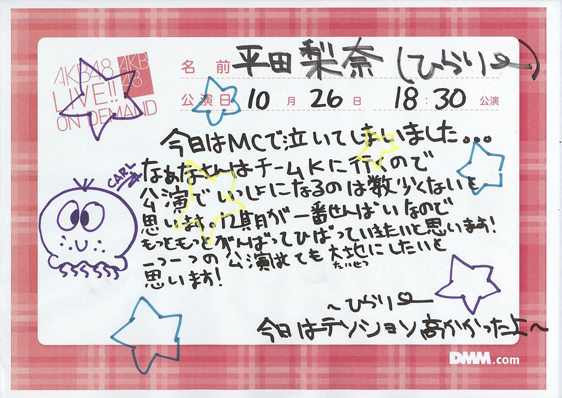 AKB48
LIVE!!
ON DEMAND
AKB
48
名前 平田梨奈(ひらりー)
公演日 10月26日 18:30公演
今日はMCで泣いてしまいました...
なぁなさんはチームKに行くので
公演でいっしょになるのは数少ないと
思います。12期が一番せんぱいなので
もっともっとがんばってひっぱっていきたいと思います!
一つ一つの公演はとても大地にしたいと
たいせつ
思います!
CARL
〜ひらりー
今日はテンション高かかったよ〜
DMM.com